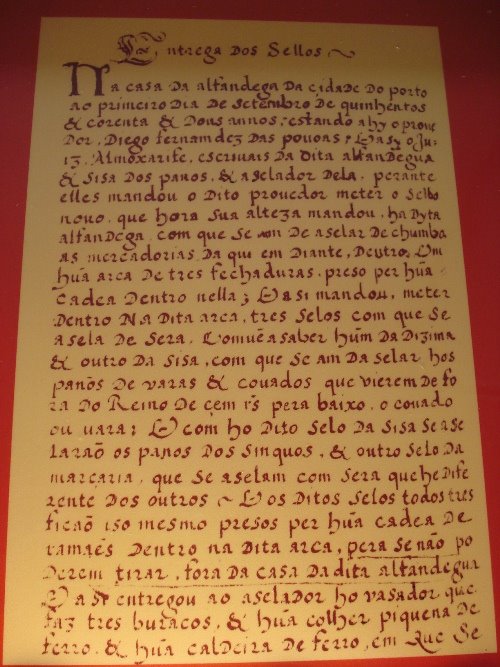 Entrega dos Sellos
Na casa da alfandega da cidade do porto
ao primeiro dia de setembro, de quinhentos
& corenta & dous annos, estando ahy o prove
dor, Diego fernamdez das povoas, & asy o Ju-
iz, Almoxarife, escrivais da dita alfandegua
& sisa dos panos, & aselador dela, perante
elles mandou o dito provedor meter o sello
novo, que hora sua alteza mandou, ha dyta
alfandega, com que se am de aselar de chumbo
as mercadorias da qui em diante, dentro, Em
hũa arca de tres fechaduras, preso per hũa
cadea dentro nella; & asi mandou, meter
dentro na dita arca, tres selos com que se
asela de sera, Comvẽ a saber hũm da dizima
& outro da sisa, com que se am daselar hos
panos de varas & covados que vierem de fo
ra do Reino de cem rs pera baixo, o covado
ou vara; & com ho dito selo da sisa se ase
larão os panos dos sinquos, & outro selo da
marcaria, que se aselam com sera que he dife
rente dos outros ~ & os ditos selos todos tres
ficão iso mesmo presos per hũa cadea de
ramaẽs dentro na dita arca, pera se não po
derem tirar, fora da casa da dita alfandegua
& asi entregou ao aselador ho vasador que
faz tres buracos, & hũa colher piquena de
ferro, & hũa caldeira de ferro, em que se